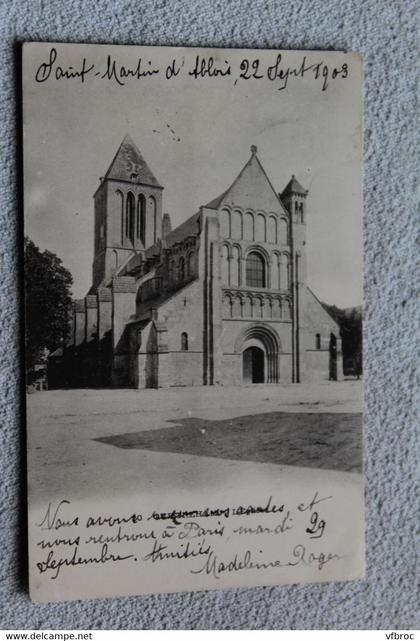 Saint-Martin d'Ablois, 22 Sept 1903
Nous avons reçu vos cartes, et
nous rentrons à Paris, mardi 29
Septembre. Amitiés,
Madeleine Roger
vfbroc
www.delcampe.net